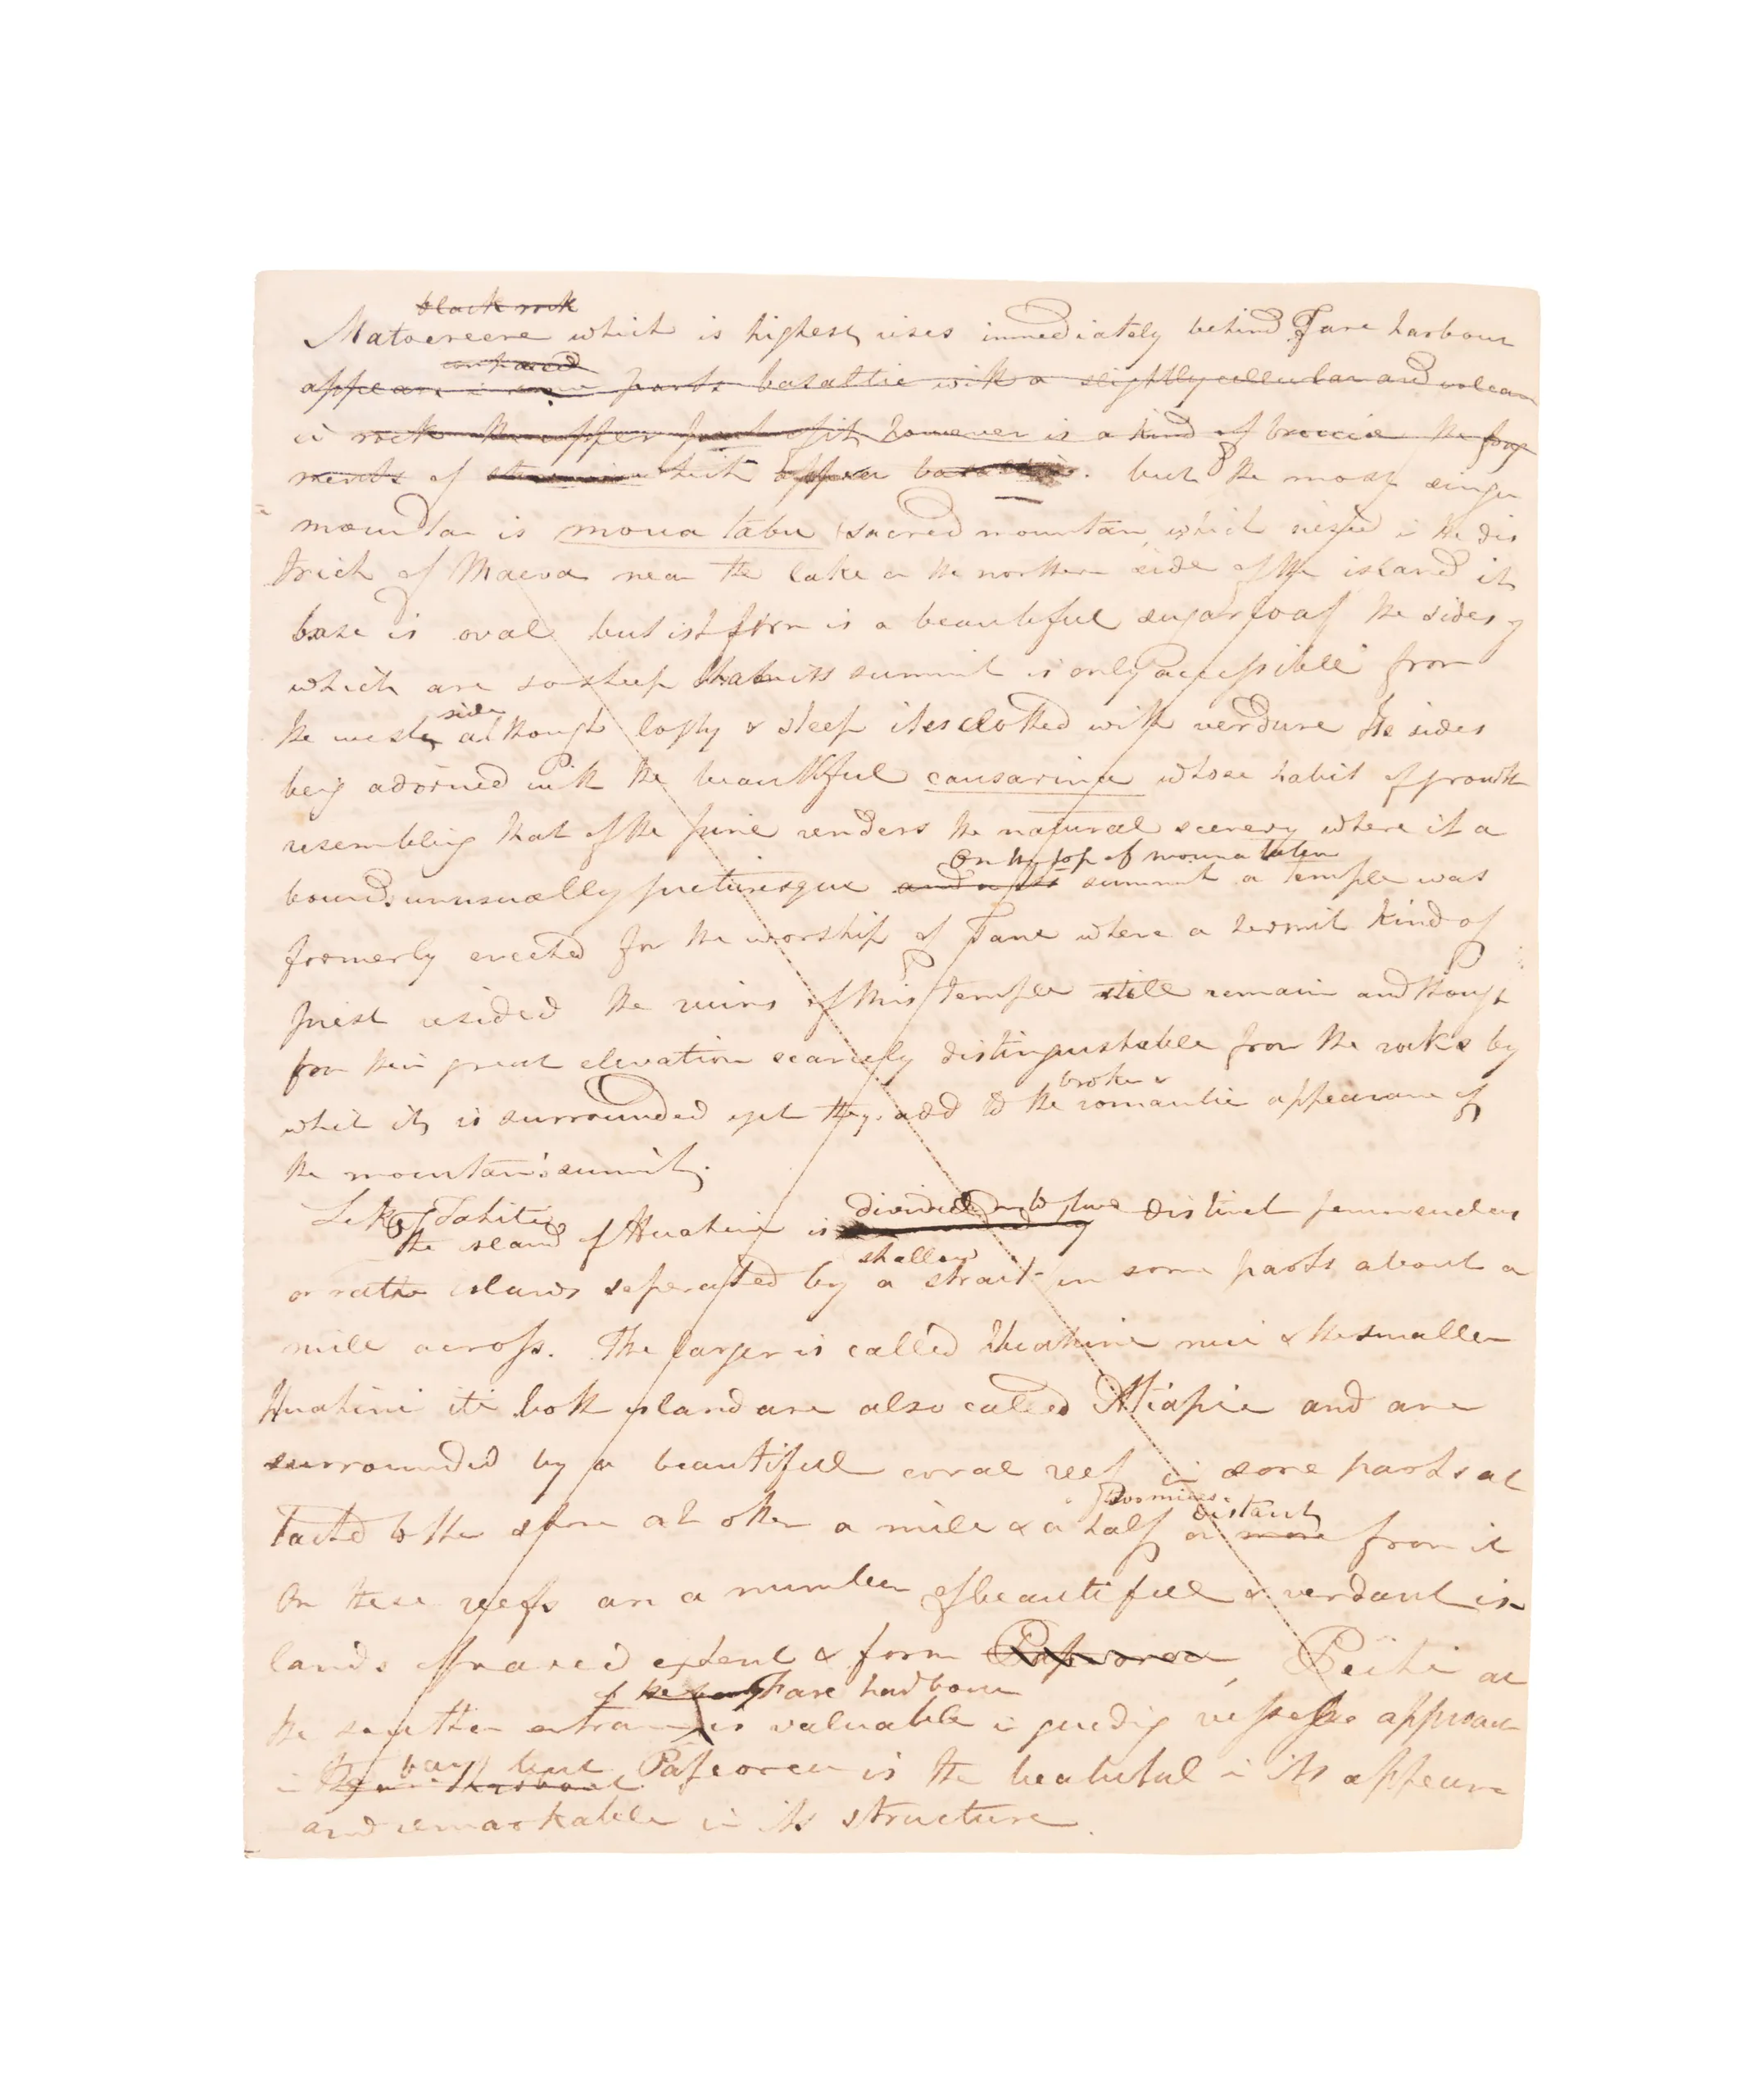 black rock
Matoereere which is highest rises immediately behind Fare harbour
compared
appears in some parts basaltic with a slightly cellular and volcan
ic rock the upper part of it however is a kind of breccia the frag
ments of which appear . but the most singu
mountan is moua tabu (sacred mountan which rises in the dis
trict of Maeva near the lake on the northern side of the island it
base is oval but ist form is a beautiful sugar loaf the sides of
which are so steep that its summit is only accessible from
side
the west although lofty & steep it is clothed with verdure the sides
beig adorned with the beautiful causarina whose habit of growth
resemblig that of the pine renders the natural scenery where it a
On the top of moua tabu
bounds unusually picturesque and on its summit a temple was
formerly erected for the worship of Tane where a hermit kind of
priest resided the ruins of this temple still remain and though
from their great elevation scarcely distinguishable from the rocks by
broken &
which it is surrounded yet they add to the romantic appearance of
the mountan's summit.
Like Tahiti divided into two
the island of Huahine is distinct penensulas
shallow
or rather islands seperated by a strait in some parts about a
mile across. The larger is called Huahine nui & the smaller
Huahine iti both island are also called Atiapii and are
surrounded by a beautiful coral reef in some parts at
two miles distant
tached to the shore at other a mile & a half or more from it
On these reefs are a number of beautiful & verdant is
lands of varied extent & form Papeorea Peihi at
of the bay Fare harbour
the southern entrance is valuable in guidig vessels approach
bay but
in the harbour Papeorea is the beautiful in its appearance
and remarkable in its structure.